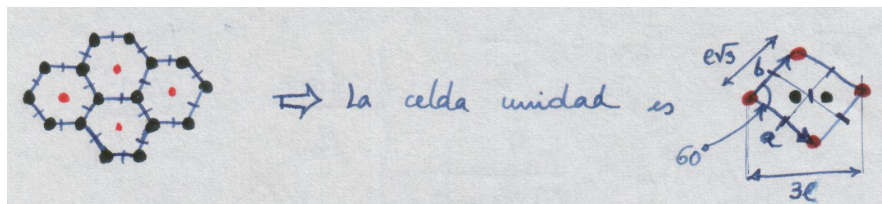 ⇒ La celda unidad es
e√3
b
a
60°
3e